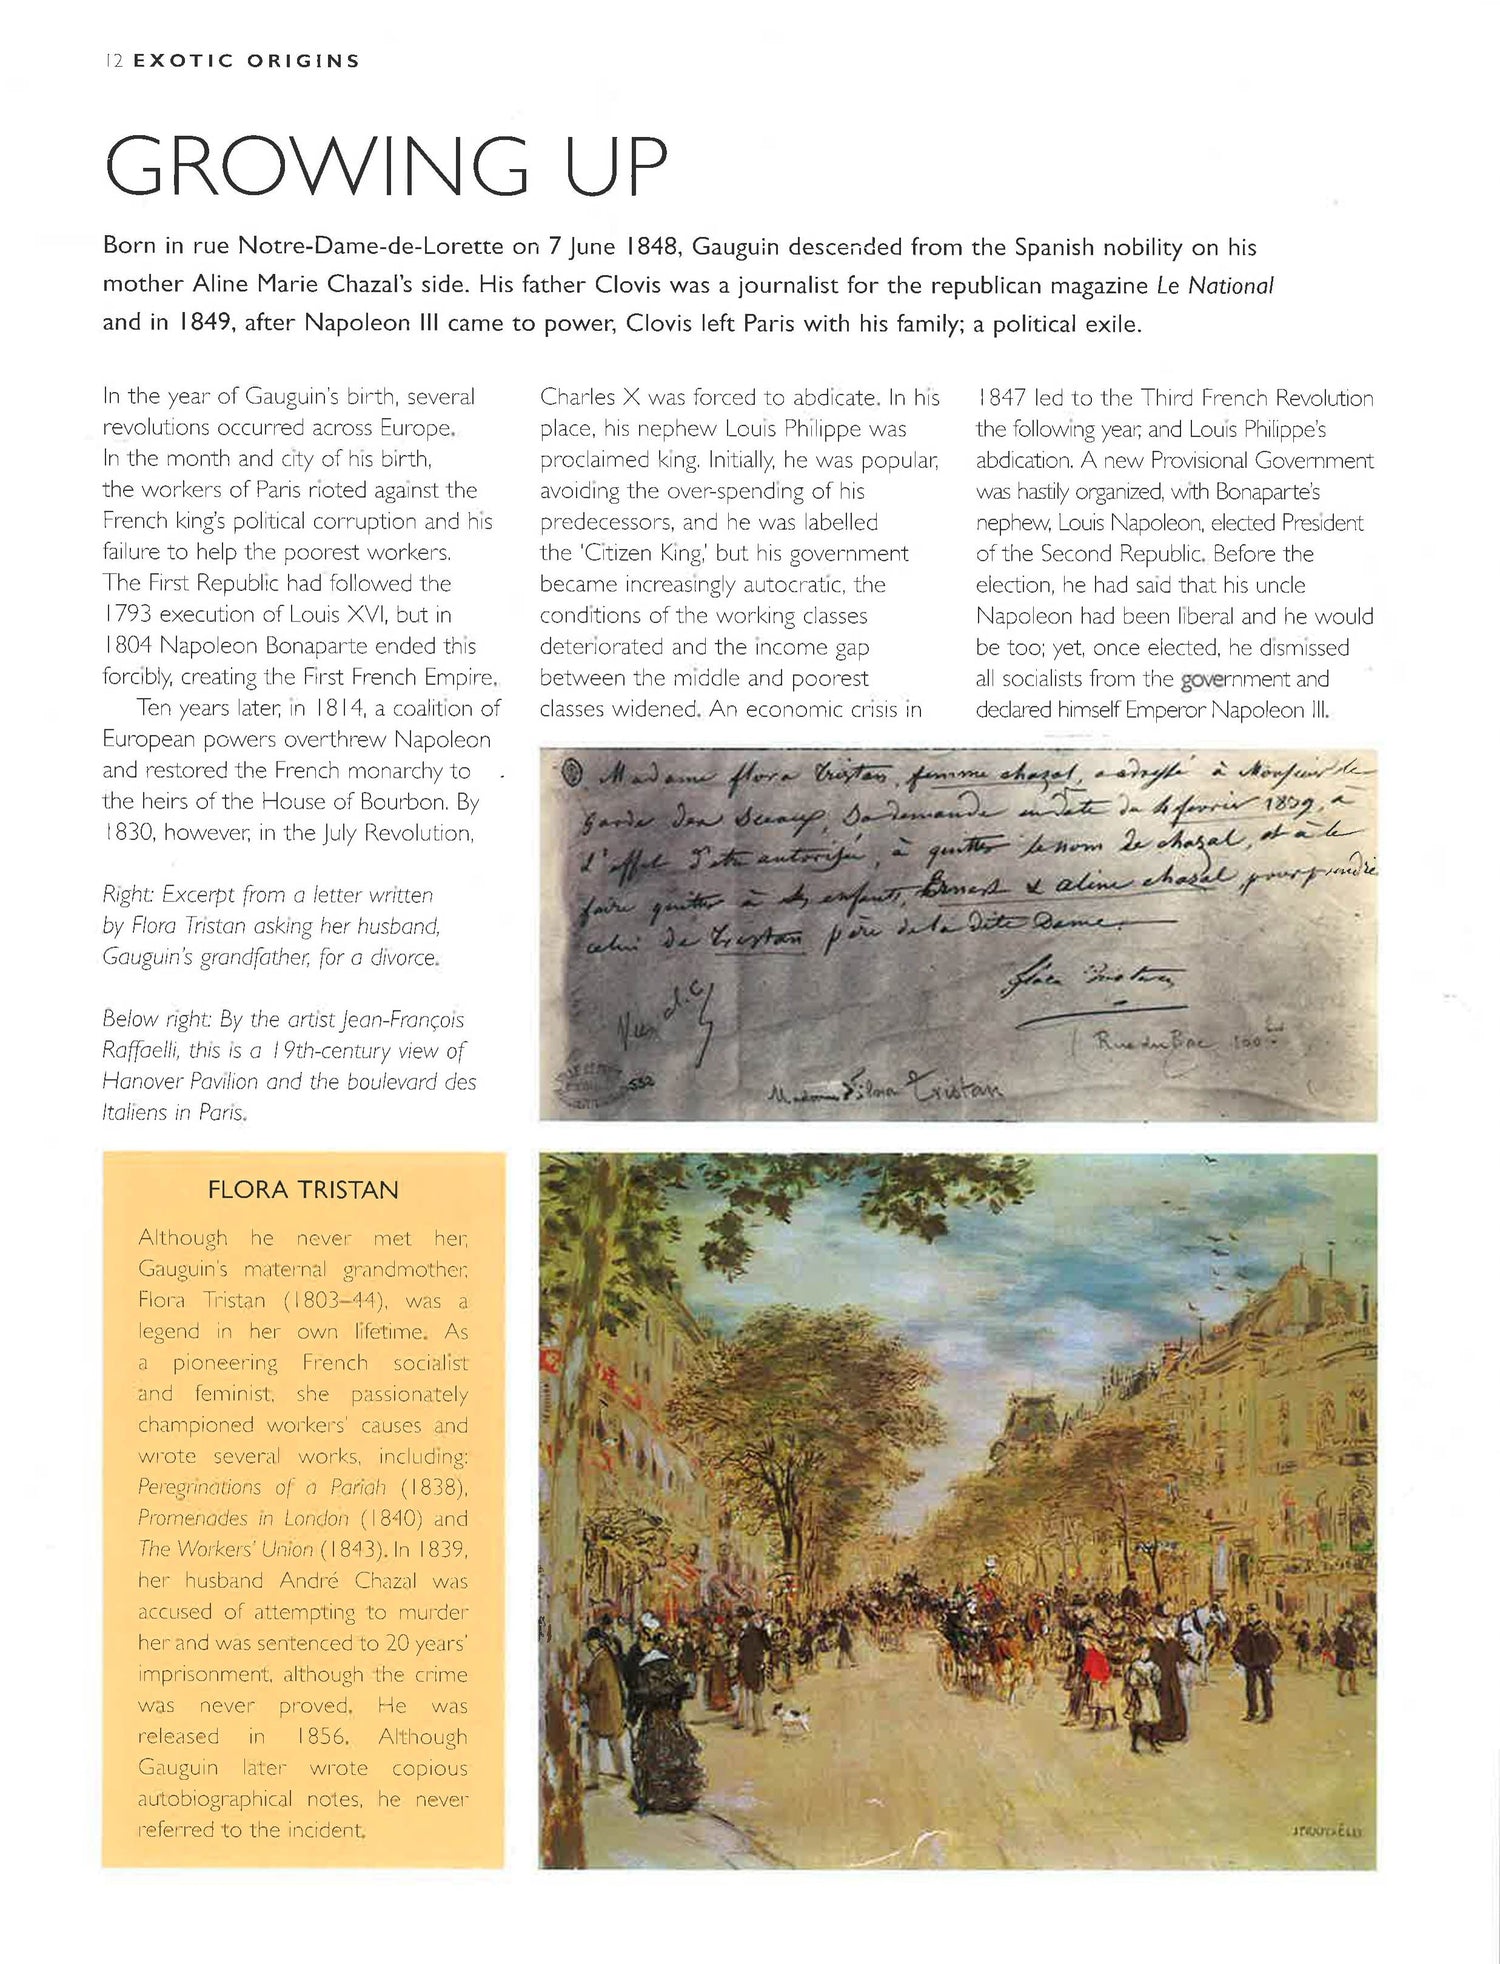 12 EXOTIC ORIGINS
GROWING UP
Born in rue Notre-Dame-de-Lorette on 7 June 1848, Gauguin descended from the Spanish nobility on his
mother Aline Marie Chazal's side. His father Clovis was a journalist for the republican magazine Le National
and in 1849, after Napoleon III came to power, Clovis left Paris with his family; a political exile.
In the year of Gauguin's birth, several
revolutions occurred across Europe.
In the month and city of his birth,
the workers of Paris rioted against the
French king's political corruption and his
failure to help the poorest workers.
The First Republic had followed the
1793 execution of Louis XVI, but in
1804 Napoleon Bonaparte ended this
forcibly, creating the First French Empire.
Ten years later, in 1814, a coalition of
European powers overthrew Napoleon
and restored the French monarchy to
the heirs of the House of Bourbon. By
1830, however, in the July Revolution,
Charles X was forced to abdicate. In his
place, his nephew Louis Philippe was
proclaimed king. Initially, he was popular,
avoiding the over-spending of his
predecessors, and he was labelled
the 'Citizen King,' but his government
became increasingly autocratic, the
conditions of the working classes
deteriorated and the income gap
between the middle and poorest
classes widened. An economic crisis in
1847 led to the Third French Revolution
the following year, and Louis Philippe's
abdication. A new Provisional Government
was hastily organized, with Bonaparte's
nephew, Louis Napoleon, elected President
of the Second Republic. Before the
election, he had said that his uncle
Napoleon had been liberal and he would
be too; yet, once elected, he dismissed
all socialists from the government and
declared himself Emperor Napoleon III.
Right: Excerpt from a letter written
by Flora Tristan asking her husband,
Gauguin's grandfather, for a divorce.
Below right: By the artist Jean-François
Raffaelli, this is a 19th-century view of
Hanover Pavilion and the boulevard des
Italiens in Paris.
Madame flora Tristan, femme chazal, a adressé à Monsieur le
Garde des Sceaux, Sa demande en date du 4 fevrier 1839, à
l'effet d'etre autorisée, à quitter le nom de chazal, et à le
faire quitter à ses enfants, Ernest & aline chazal, pour prendre
celui de Tristan père de la dite Dame.
flora Tristan
Rue du Bac 100
552
Madame Flora Tristan
FLORA TRISTAN
Although he never met her,
Gauguin's maternal grandmother,
Flora Tristan (1803–44), was a
legend in her own lifetime. As
a pioneering French socialist
and feminist, she passionately
championed workers' causes and
wrote several works, including:
Peregrinations of a Pariah (1838),
Promenades in London (1840) and
The Workers' Union (1843). In 1839,
her husband André Chazal was
accused of attempting to murder
her and was sentenced to 20 years'
imprisonment, although the crime
was never proved. He was
released in 1856. Although
Gauguin later wrote copious
autobiographical notes, he never
referred to the incident.